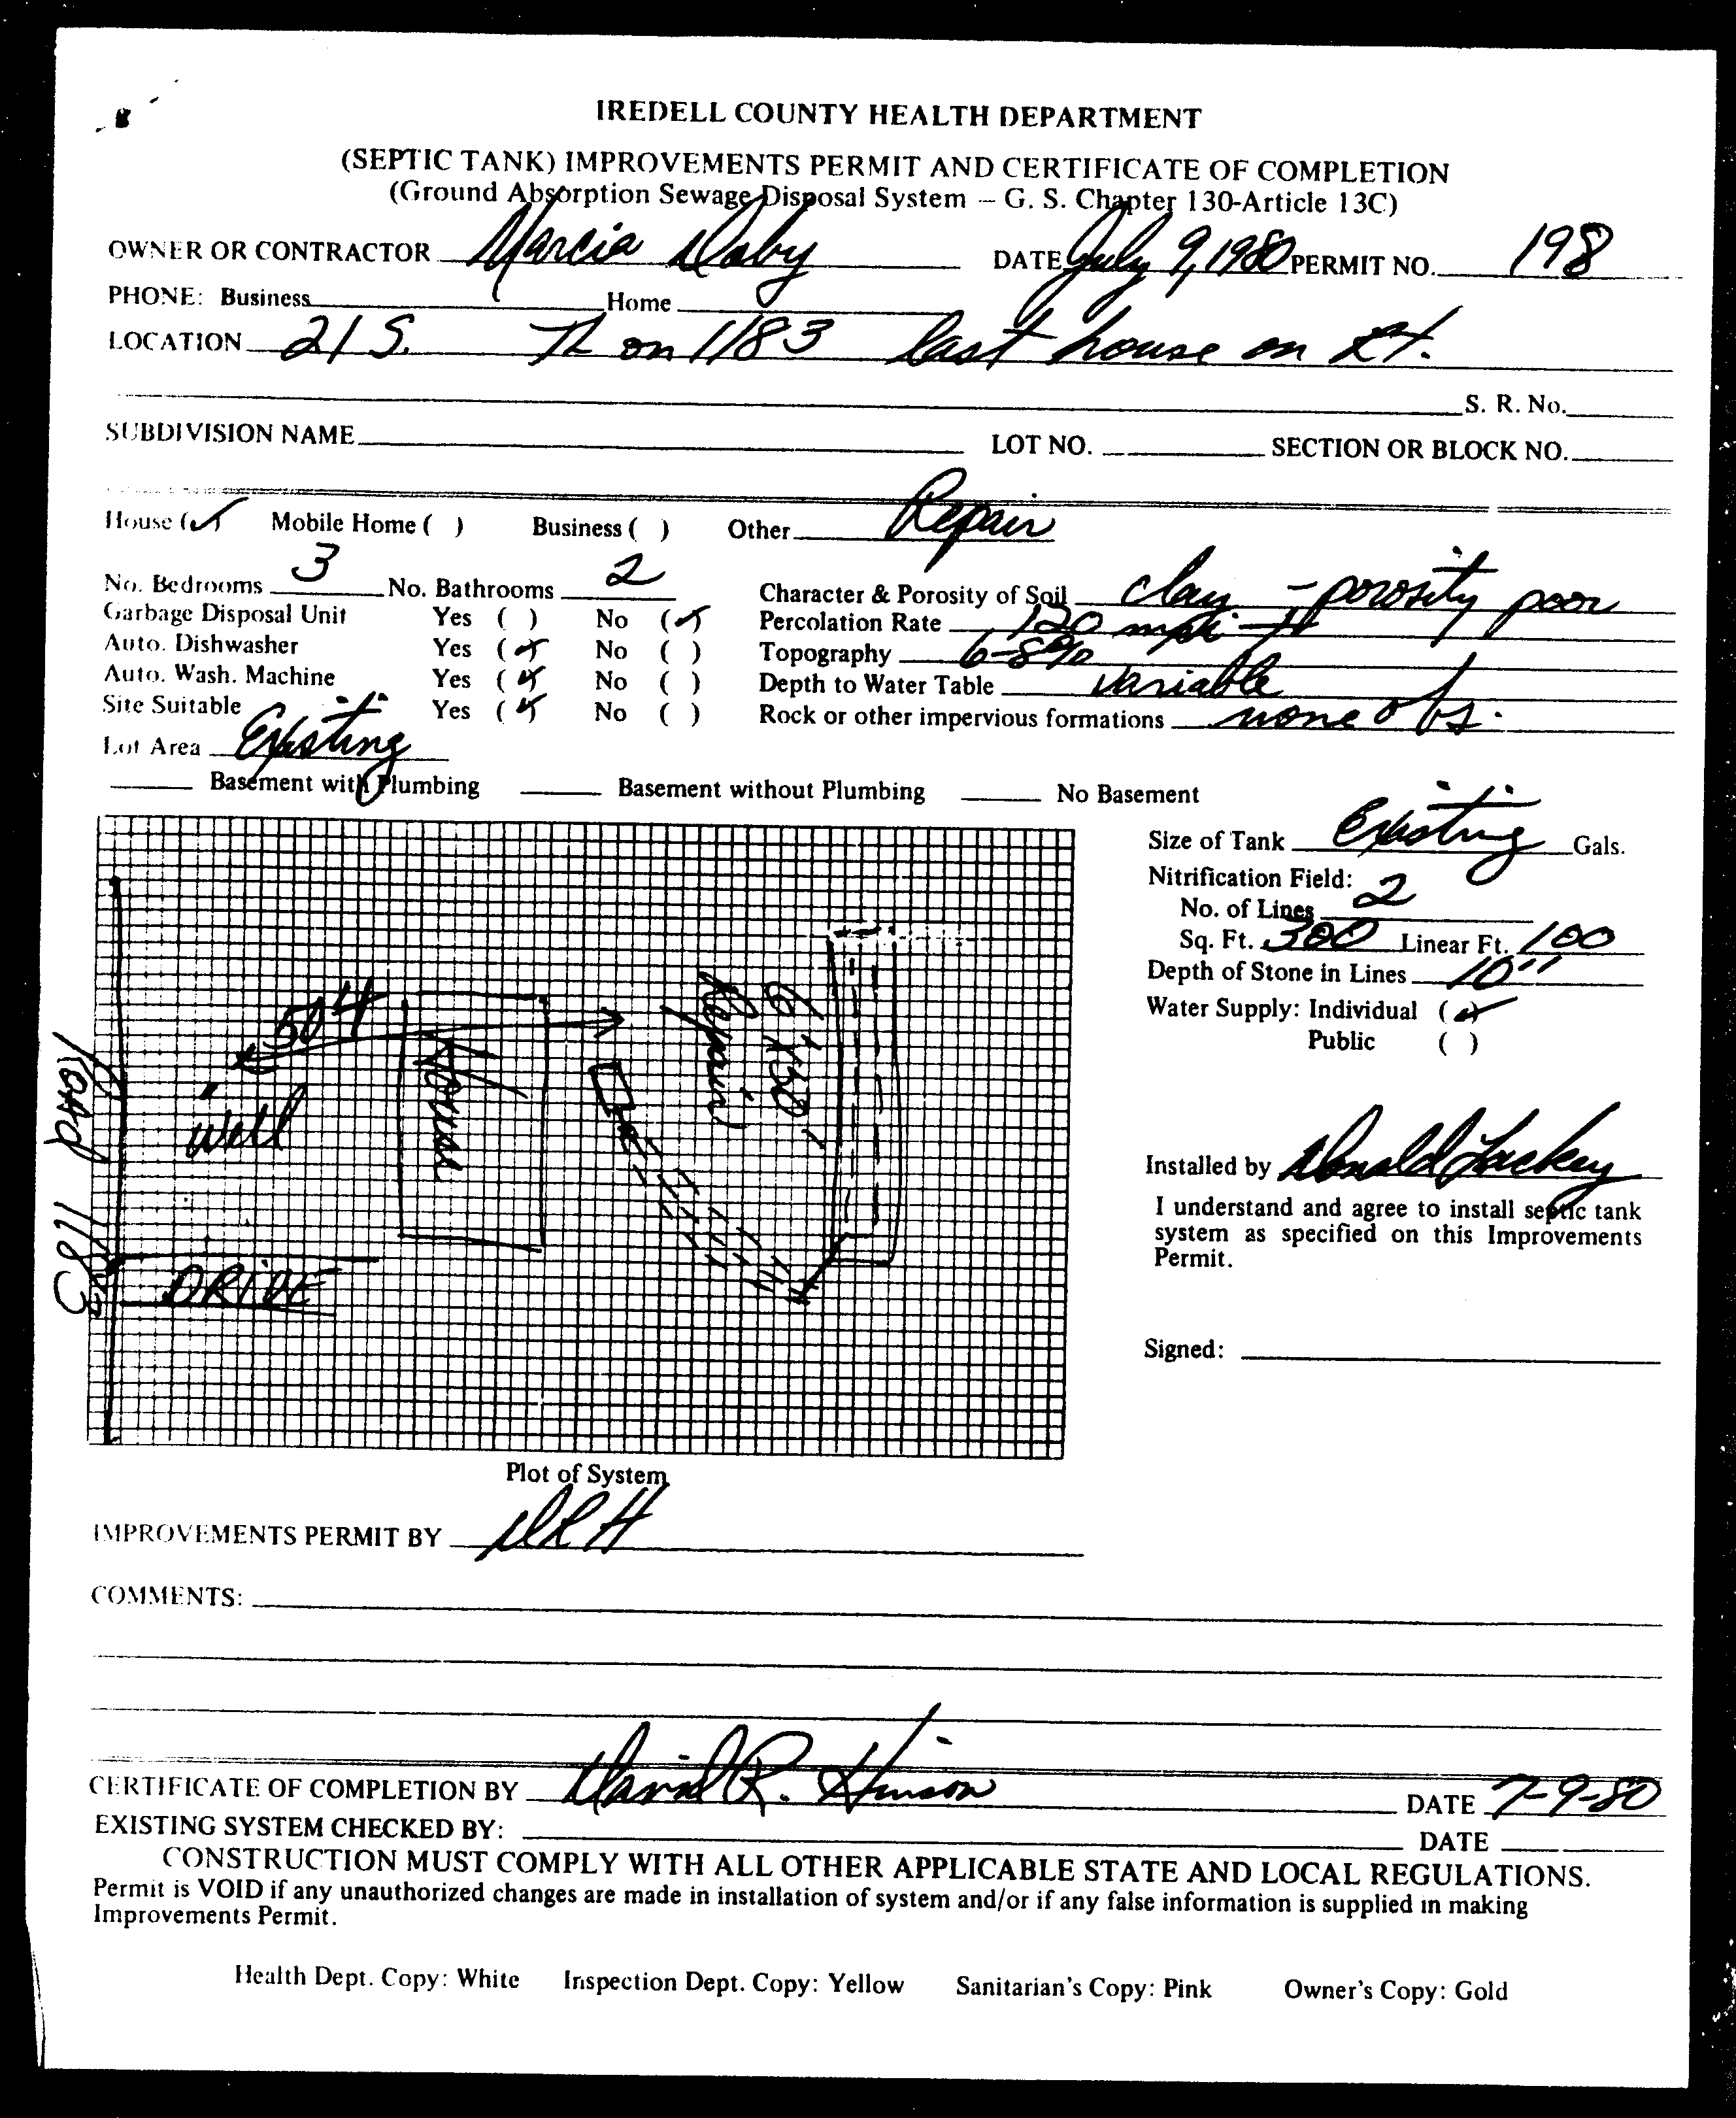 IREDELL COUNTY HEALTH DEPARTMENT
(SEPTIC TANK) IMPROVEMENTS PERMIT AND CERTIFICATE OF COMPLETION
(Ground Absorption Sewage Disposal System – G. S. Chapter 130-Article 13C)
OWNER OR CONTRACTOR Marcia Doby DATE July 9, 1980 PERMIT NO. 198
PHONE: Business Home
LOCATION 21 S. TL on 1183 last house on Rt.
S. R. No.
SUBDIVISION NAME LOT NO. SECTION OR BLOCK NO.
House (✓) Mobile Home ( ) Business ( ) Other Repair
No. Bedrooms 3 No. Bathrooms 2 Character & Porosity of Soil clay - porosity poor
Garbage Disposal Unit Yes ( ) No (✓) Percolation Rate 120 mpi
Auto. Dishwasher Yes (✓) No ( ) Topography 6-8%
Auto. Wash. Machine Yes (✓) No ( ) Depth to Water Table variable
Site Suitable Yes (✓) No ( ) Rock or other impervious formations none obs.
Lot Area Existing
Basement with Plumbing Basement without Plumbing No Basement
Size of Tank Existing Gals.
Nitrification Field:
No. of Lines 2
Sq. Ft. 300 Linear Ft. 100
Depth of Stone in Lines 10"
Water Supply: Individual (✓)
Public ( )
Road 1183
50'+
Well
House
Repair
6' x 50'
DRIVE
Installed by Donald Lackey
I understand and agree to install septic tank
system as specified on this Improvements
Permit.
Signed:
Plot of System
IMPROVEMENTS PERMIT BY DRH
COMMENTS:
CERTIFICATE OF COMPLETION BY David R. Hinson DATE 7-9-80
EXISTING SYSTEM CHECKED BY: DATE
CONSTRUCTION MUST COMPLY WITH ALL OTHER APPLICABLE STATE AND LOCAL REGULATIONS.
Permit is VOID if any unauthorized changes are made in installation of system and/or if any false information is supplied in making
Improvements Permit.
Health Dept. Copy: White Inspection Dept. Copy: Yellow Sanitarian's Copy: Pink Owner's Copy: Gold